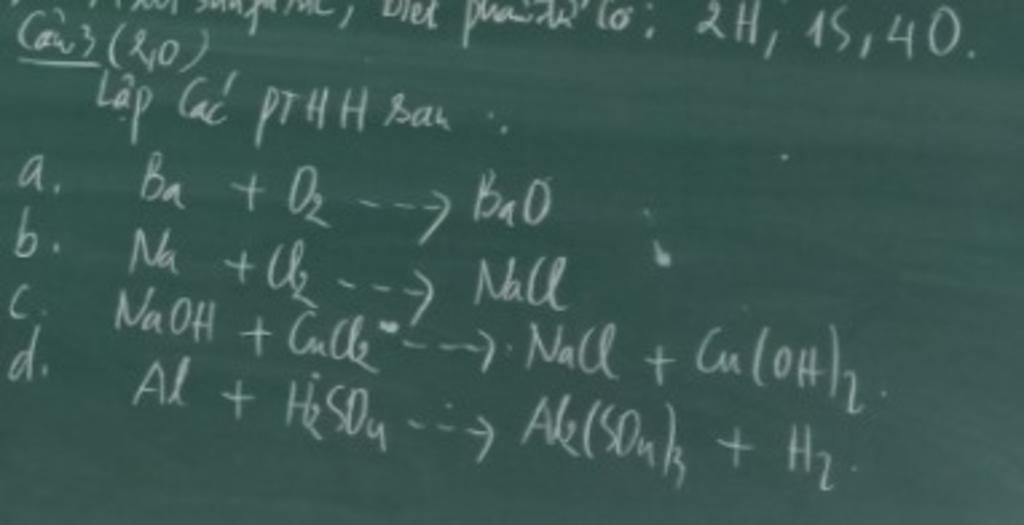 biết phân tử có: 2H, 1S, 4O.
Câu3 (2,0)
Lập các PTHH sau:
a. Ba + O₂ ---> BaO
b. Na + Cl₂ ---> NaCl
c. NaOH + CuCl₂ ---> NaCl + Cu(OH)₂.
d. Al + H₂SO₄ ---> Al₂(SO₄)₃ + H₂.